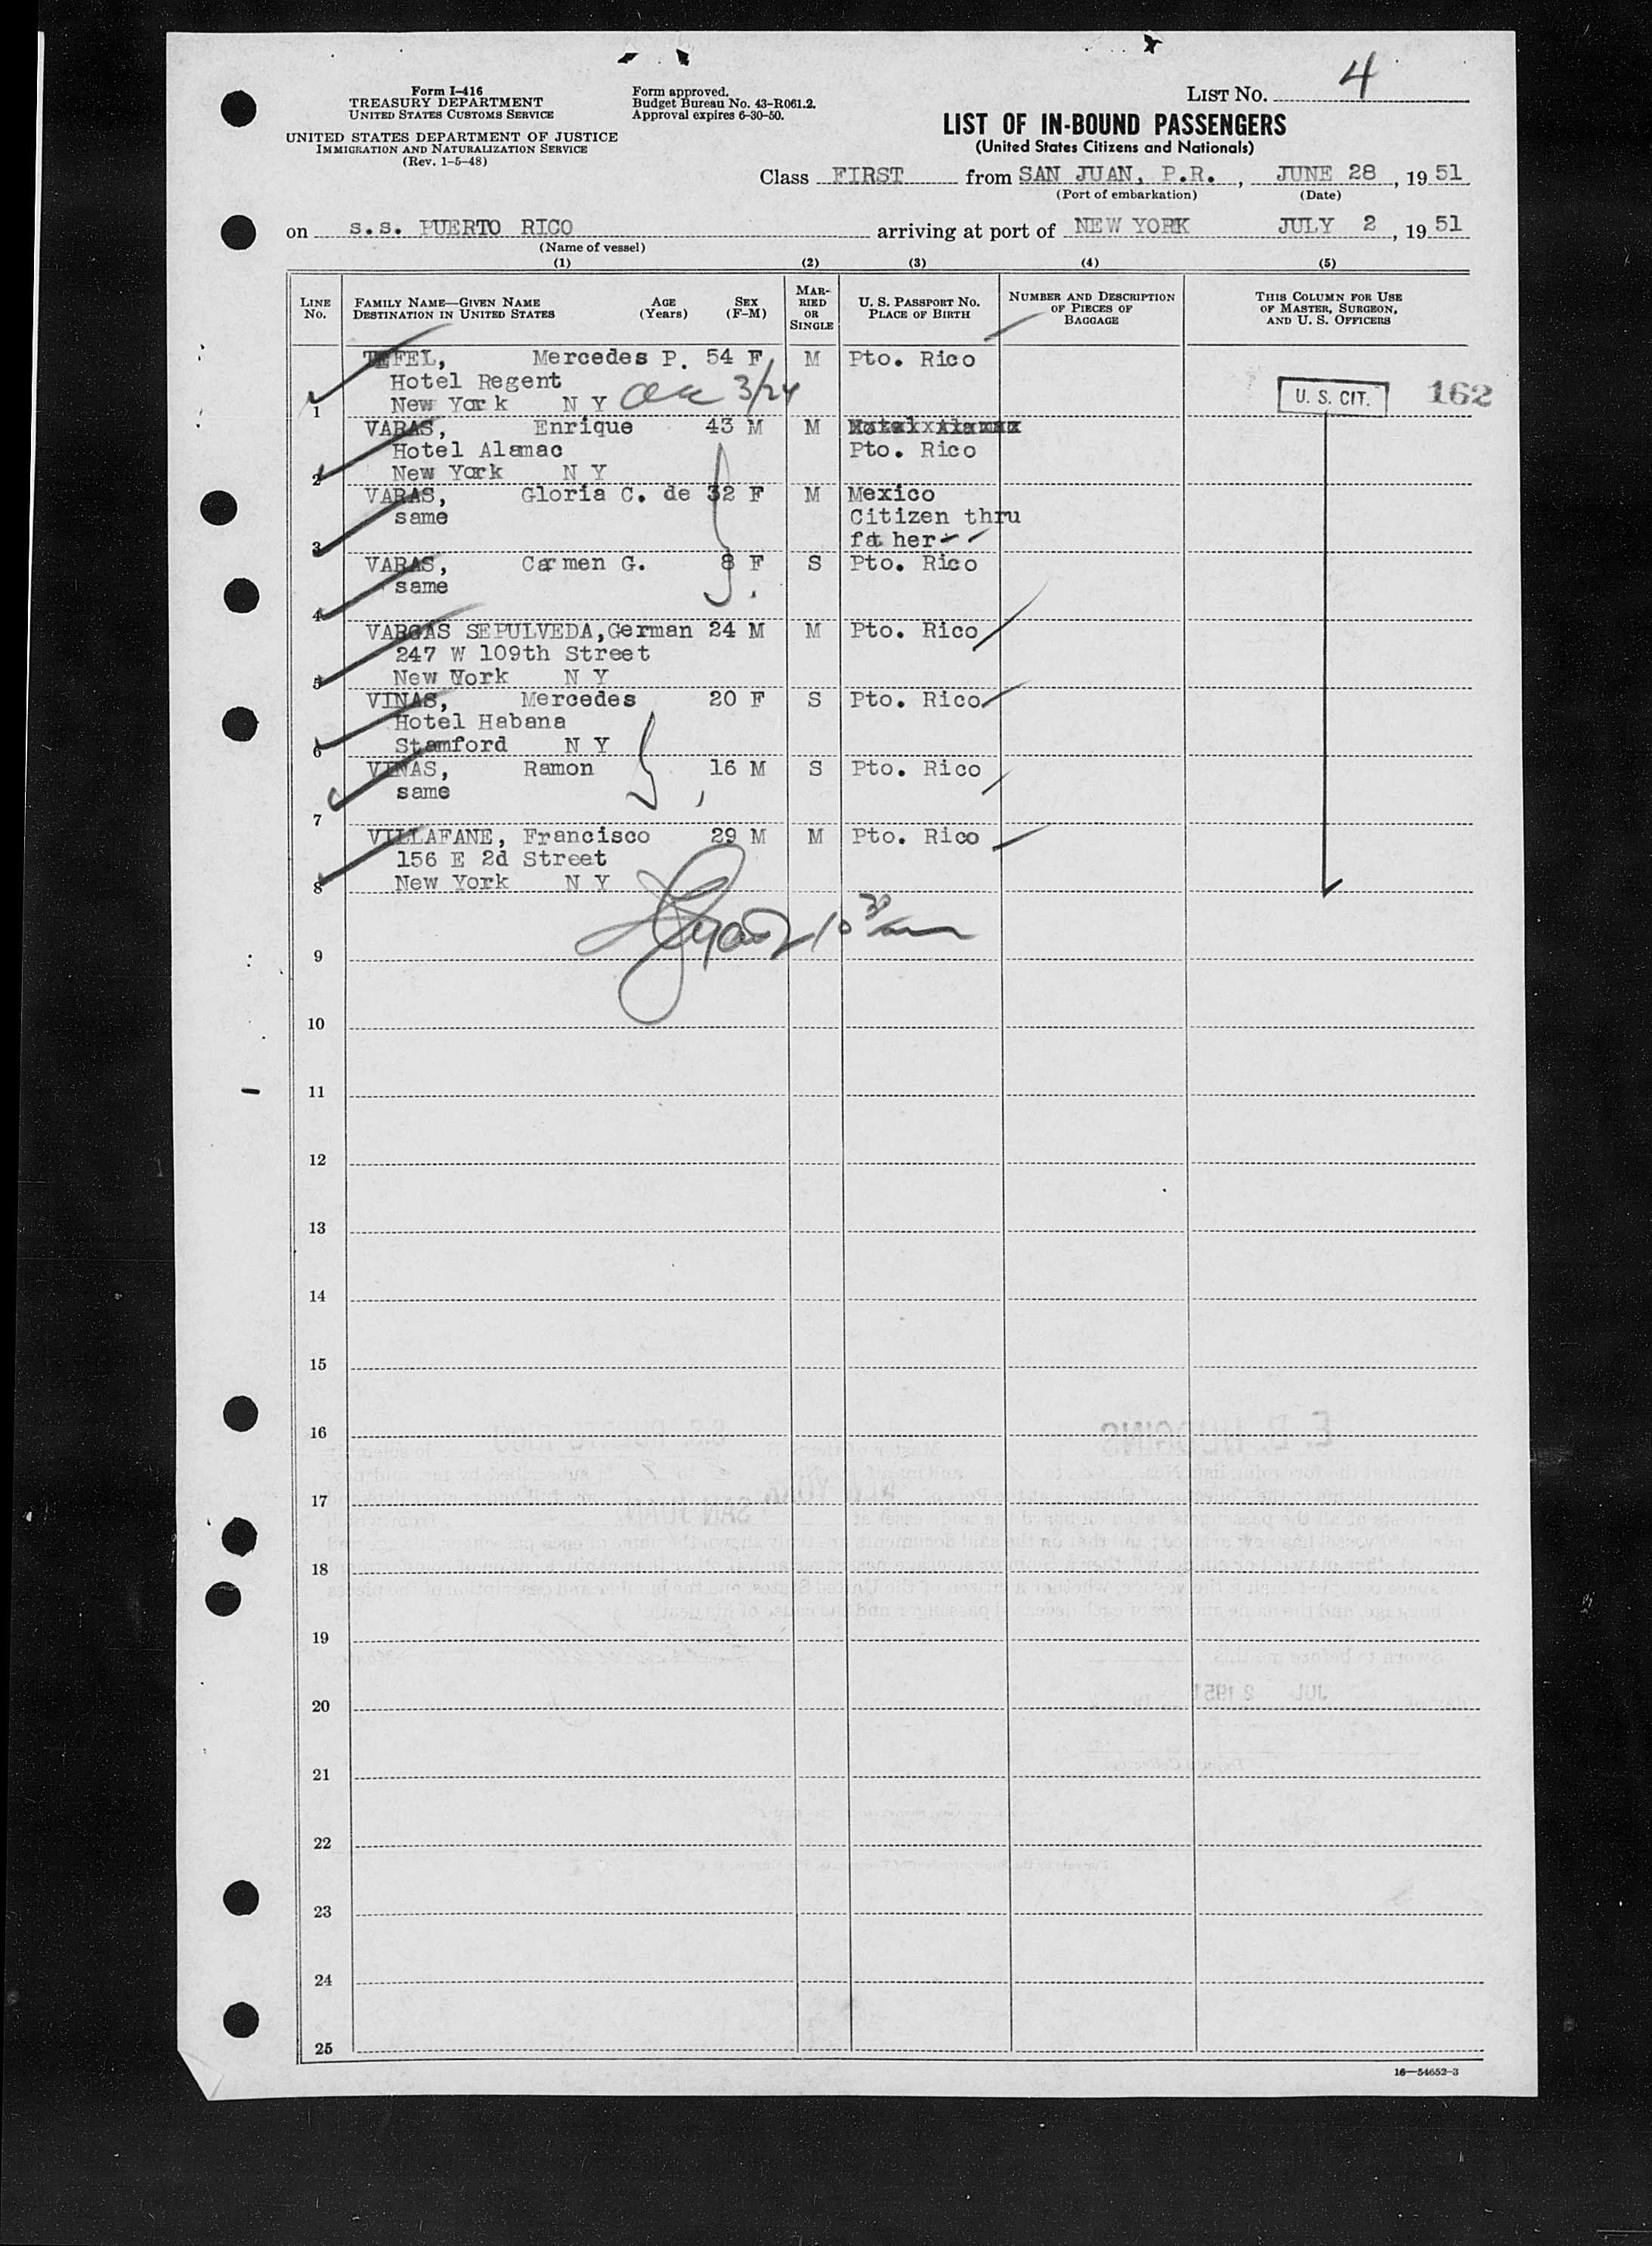 Form I-416
TREASURY DEPARTMENT
UNITED STATES CUSTOMS SERVICE
UNITED STATES DEPARTMENT OF JUSTICE
IMMIGRATION AND NATURALIZATION SERVICE
(Rev. 1-5-48)
Form approved.
Budget Bureau No. 43-R061.2.
Approval expires 6-30-50.
LIST NO. 4
LIST OF IN-BOUND PASSENGERS
(United States Citizens and Nationals)
Class FIRST from SAN JUAN, P.R., JUNE 28, 1951
(Port of embarkation) (Date)
on s.s. PUERTO RICO arriving at port of NEW YORK JULY 2, 1951
(Name of vessel)
(1) (2) (3) (4) (5)
LINE NO.
FAMILY NAME—GIVEN NAME
DESTINATION IN UNITED STATES
AGE (Years)
SEX (F-M)
MARRIED OR SINGLE
U. S. PASSPORT NO.
PLACE OF BIRTH
NUMBER AND DESCRIPTION OF PIECES OF BAGGAGE
THIS COLUMN FOR USE OF MASTER, SURGEON, AND U. S. OFFICERS
TEFEL, Mercedes P. 54 F M Pto. Rico
Hotel Regent U. S. CIT. 162
1 New York N Y 3/24
VARAS, Enrique 43 M M
Hotel Alamac Pto. Rico
2 New York N Y
VARAS, Gloria C. de 32 F M Mexico
same Citizen thru
3 father
VARAS, Carmen G. 8 F S Pto. Rico
same
4
VARGAS SEPULVEDA, German 24 M M Pto. Rico
247 W 109th Street
5 New York N Y
VINAS, Mercedes 20 F S Pto. Rico
Hotel Habana
6 Stamford N Y
VINAS, Ramon 16 M S Pto. Rico
same
7
VILLAFANE, Francisco 29 M M Pto. Rico
156 E 2d Street
8 New York N Y
9
10
11
12
13
14
15
16
17
18
19
20
21
22
23
24
25
16—54652-3